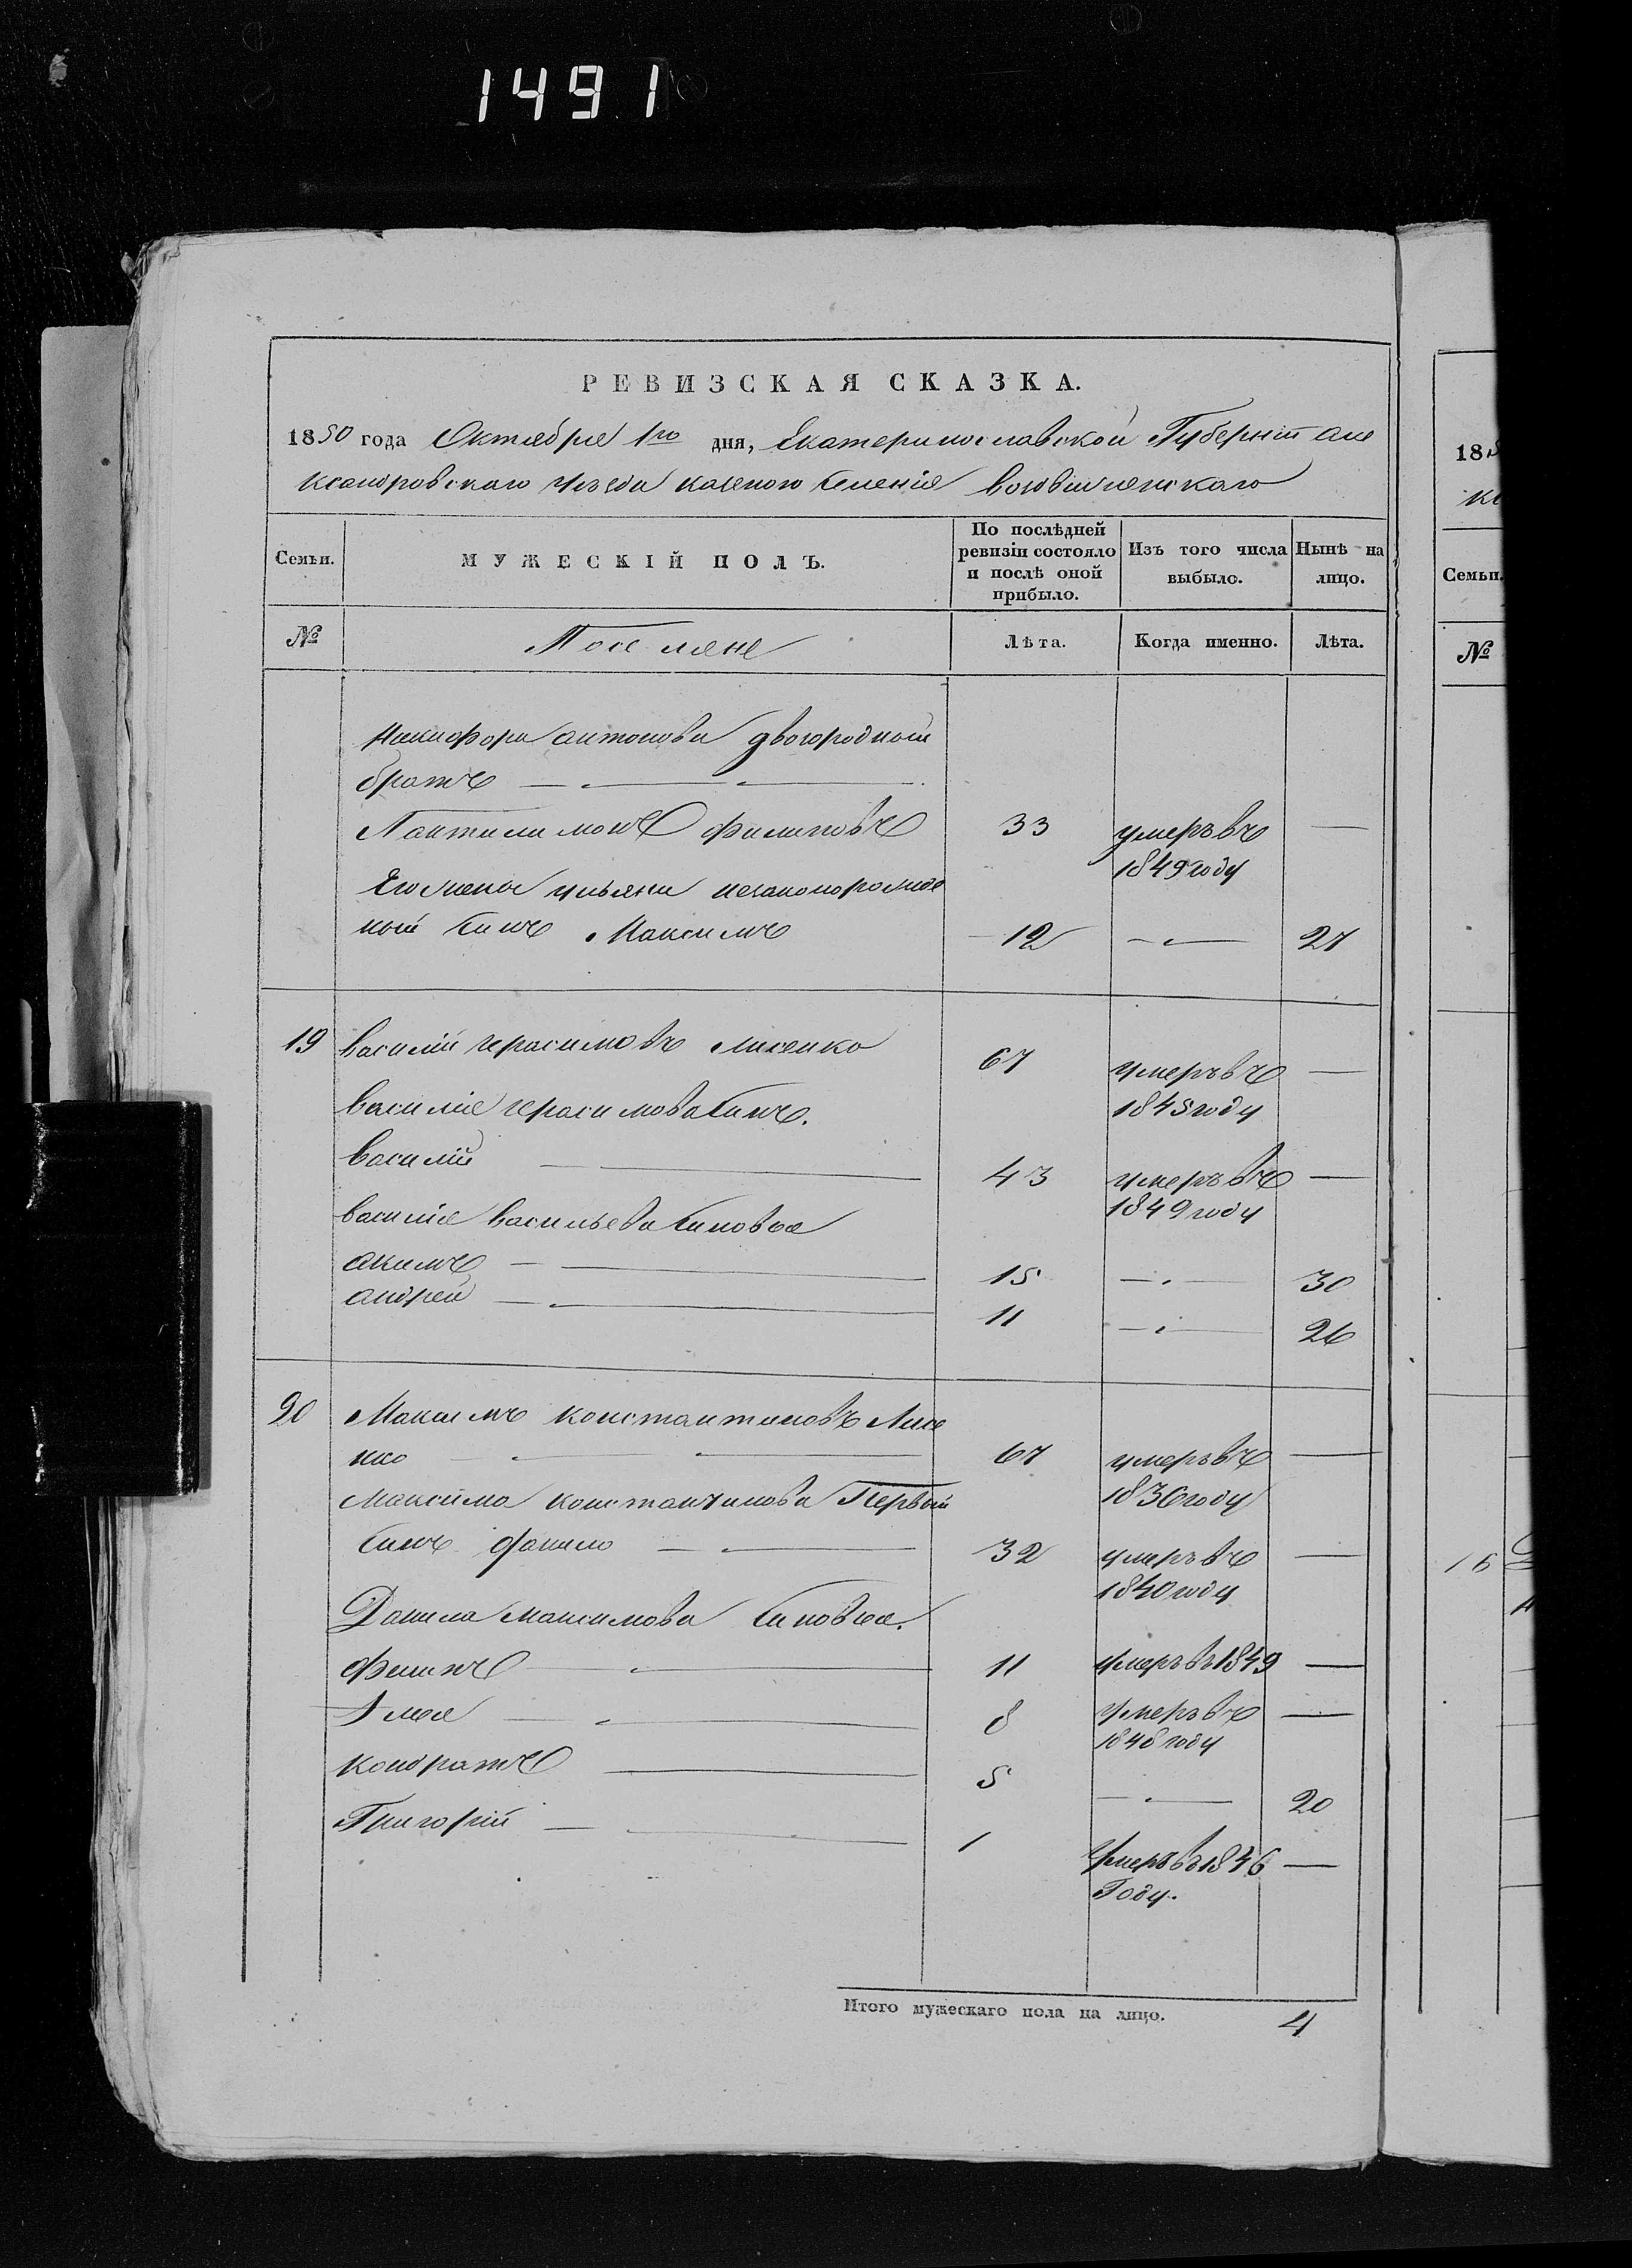 1491
РЕВИЗСКАЯ СКАЗКА.
1850 года Октября 1го дня, Екатеринославской Губернiи Але
ксандровскаго Уезда казеного селенiя
Семьи.
МУЖЕСКIЙ ПОЛЪ.
По послѣдней ревизiи состояло и послѣ оной прибыло.
Изъ того числа выбыло.
Нынѣ на лицо.
№
Поселяне
Лѣта.
Когда именно.
Лѣта.
Никифора антонова двоюродной
братъ
Пантилимонъ филиповъ 33 умеръ въ —
1849 году
Его жены ульяни незаконорожде
ный синъ Максимъ 12 — 27
19 василiй герасимовъ лисенко 67 умеръ въ —
василiя герасимова синъ. 1845 году
василiй 43 умеръ въ —
1849 году
василiя васильева синовья
акимъ 15 — 30
андрей 11 — 26
20 Максимъ константиновъ Лисе
нко 67 умеръ въ —
1836 году
максима константинова Первый
синъ данило 32 умеръ въ —
1840 году
Данила максимова синовья.
филипъ 11 умеръ въ 1849 —
8 умеръ въ —
1848 году
кондратъ 5 — 20
Григорiй 1 умеръ въ 1846 —
Году.
Итого мужескаго пола на лицо. 4
18
Семьи.
№